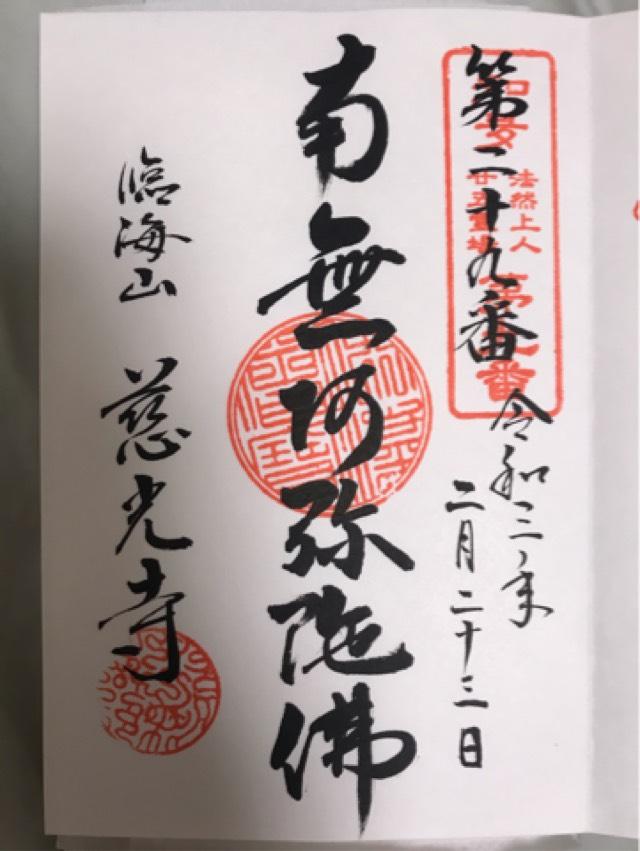 第二十九番
法然上人
令和三年
二月二十三日
南無阿弥陀佛
臨海山 慈光寺